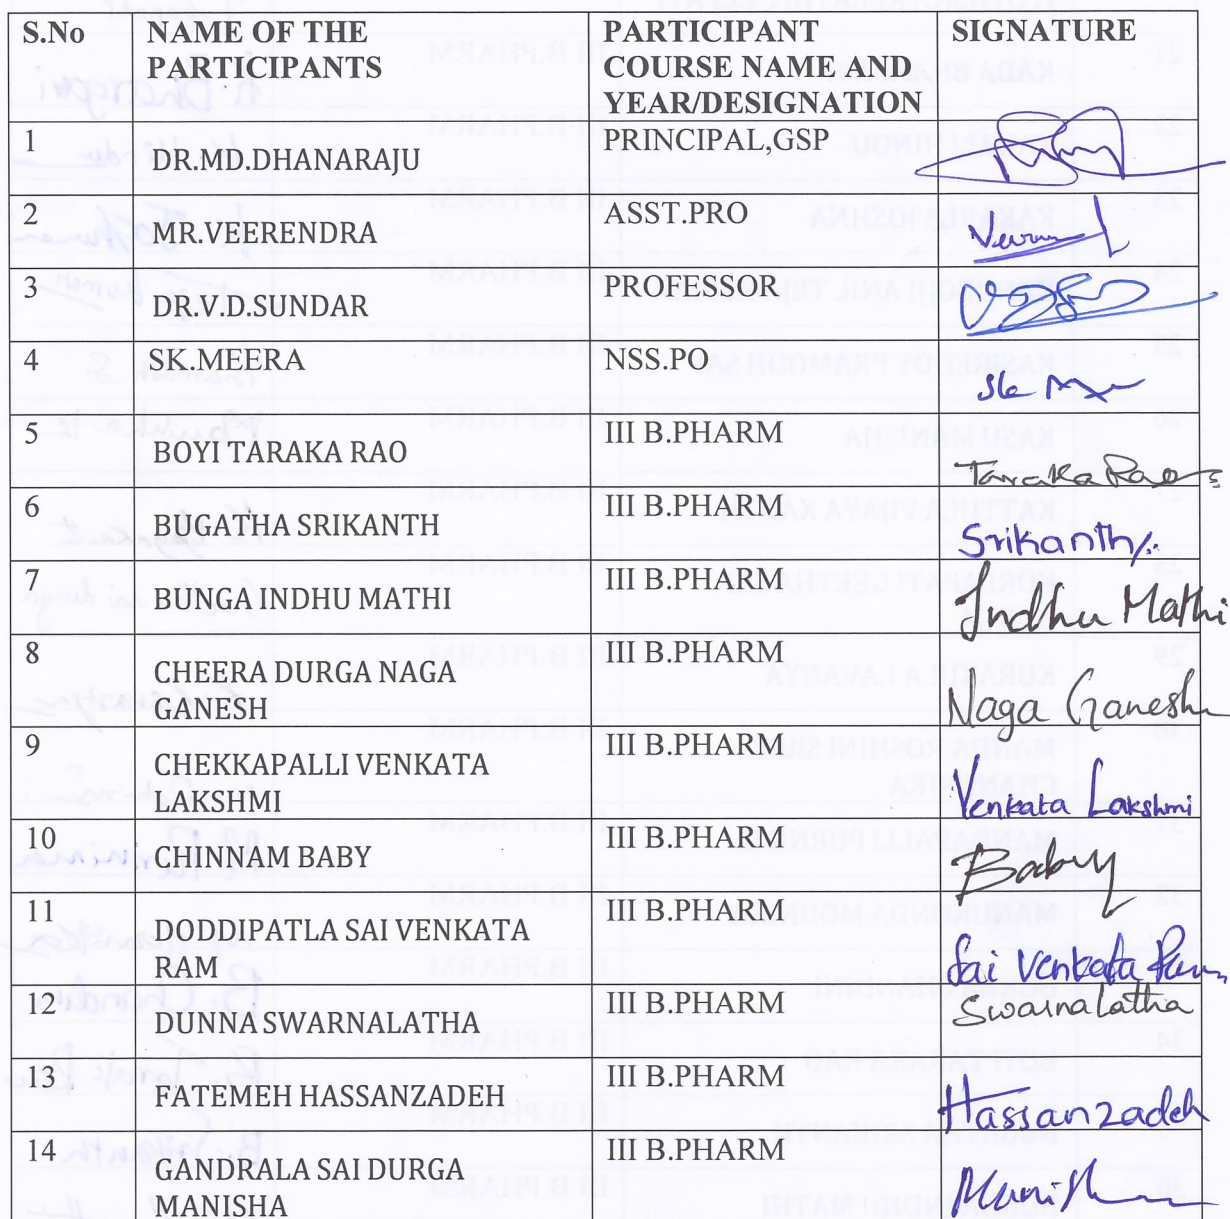 S.No NAME OF THE PARTICIPANTS PARTICIPANT COURSE NAME AND YEAR/DESIGNATION SIGNATURE
1 DR.MD.DHANARAJU PRINCIPAL,GSP
2 MR.VEERENDRA ASST.PRO
3 DR.V.D.SUNDAR PROFESSOR
4 SK. MEERA NSS.PO
5 BOYI TARAKA RAO III B.PHARM Taraka Rao
6 BUGATHA SRIKANTH III B.PHARM Srikanth
7 BUNGA INDHU MATHI III B.PHARM Indhu Mathi
8 CHEERA DURGA NAGA GANESH III B.PHARM Naga Ganesh
9 CHEKKAPALLI VENKATA LAKSHMI III B.PHARM Venkata Lakshmi
10 CHINNAM BABY III B.PHARM Baby
11 DODDIPATLA SAI VENKATA RAM III B.PHARM Sai Venkata Ram
12 DUNNA SWARNALATHA III B.PHARM Swarnalatha
13 FATEMEH HASSANZADEH III B.PHARM Hassanzadeh
14 GANDRALA SAI DURGA MANISHA III B.PHARM